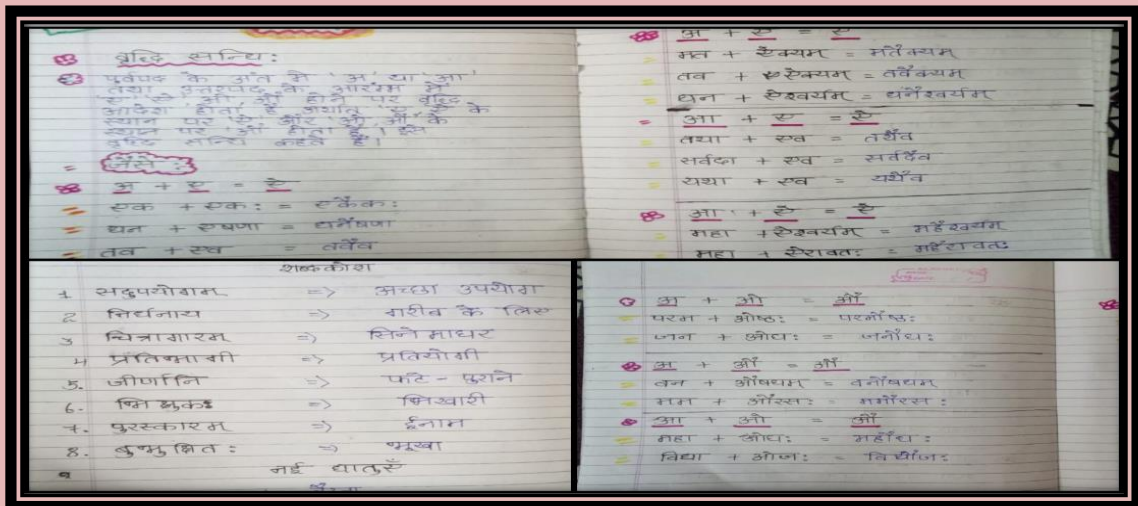 वृद्धि सन्धि:
पूर्वपद के अंत में 'अ' या 'आ'
तथा उत्तरपद के आरंभ में
ए, ऐ, ओ, औ होने पर वृद्धि
आदेश होता है अर्थात् ए, ऐ के
स्थान पर 'ऐ' और ओ, औ के
स्थान पर 'औ' होता है। इसे
वृद्धि सन्धि कहते हैं।
जैसे :
अ + ए = ऐ
एक + एक: = एकैक:
धन + एषणा = धनैषणा
तव + एव = तवैव
अ + ऐ = ऐ
मत + ऐक्यम् = मतैक्यम्
तव + ऐक्यम् = तवैक्यम्
धन + ऐश्वर्यम् = धनैश्वर्यम्
आ + ए = ऐ
तथा + एव = तथैव
सर्वदा + एव = सर्वदैव
यथा + एव = यथैव
आ + ऐ = ऐ
महा + ऐश्वर्यम् = महैश्वर्यम्
महा + ऐरावत: = महैरावत:
शब्दकोश
1. सदुपयोगम् => अच्छा उपयोग
2 निर्धनाय => गरीब के लिए
3 चित्रागारम् => सिनेमाघर
4 प्रतिभागी => प्रतियोगी
5. जीर्णानि => फटे - पुराने
6. भिक्षुक: => भिखारी
7. पुरस्कारम् => ईनाम
8. बुभुक्षित: => भूखा
नई धातुएँ
अ + ओ = औ
परम + ओष्ठ: = परमौष्ठ:
जन + ओघ: = जनौघ:
अ + औ = औ
वन + औषधम् = वनौषधम्
मम + औरस: = ममौरस:
आ + ओ = औ
महा + ओघ: = महौघ:
विद्या + ओज: = विद्यौज: